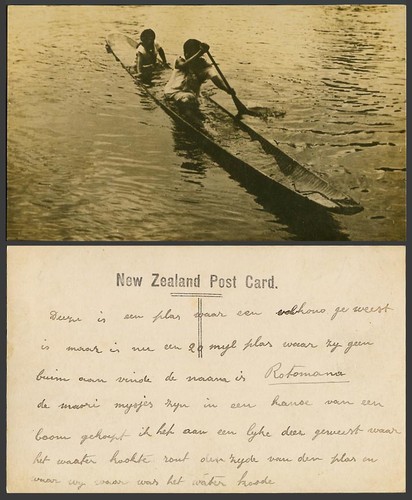 New Zealand Post Card.
Deeze is een plas waar een volkano geweest
is maar is nu een 20 myl plas waar zy geen
buim aan vinde de naam is Rotomana
de maori mysjes zyn in een kanoe van een
boom gekapt ik heb aan een lyke deer geweest waar
het waater kookte zout den zyde van den plas en
waar wy waar was het water koode